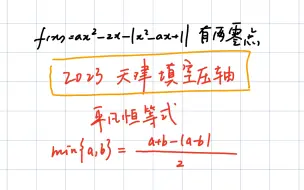 f(x)=ax²-2x-|x²-ax+1| 有两零点
2023 天津 填空压轴
平凡恒等式
min{a,b} = \frac{a+b-|a-b|}{2}